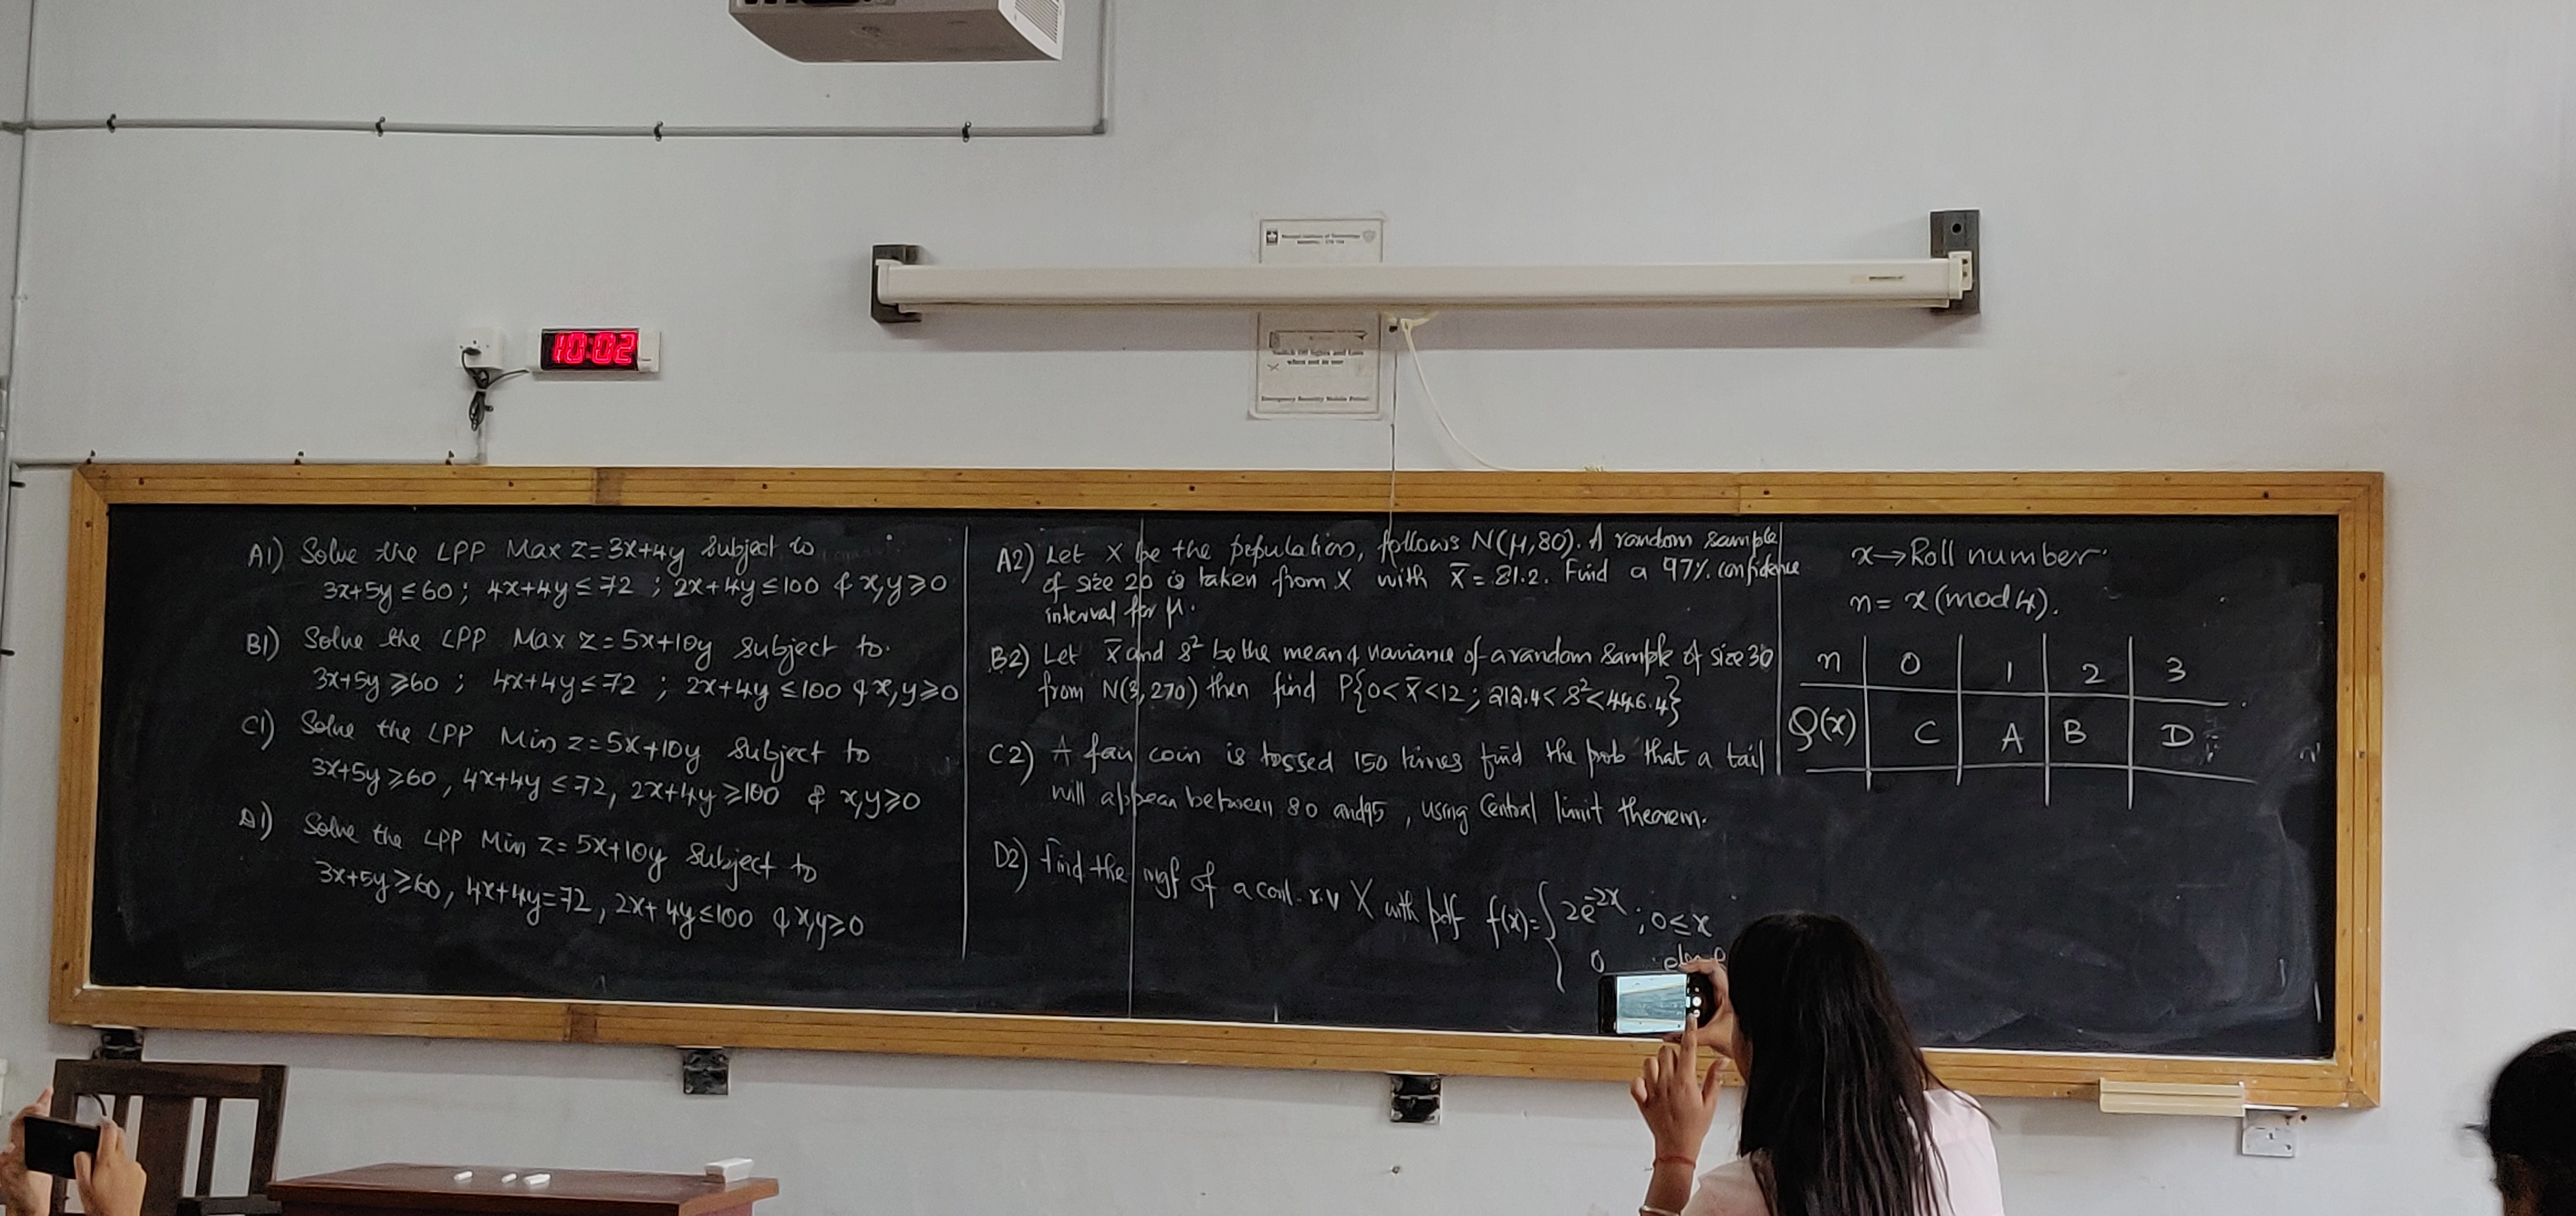 Manipal Institute of Technology
10:02
Switch Off lights and Fans
when not in use
A1) Solve the LPP Max z=3x+4y subject to
3x+5y≤60; 4x+4y≤72; 2x+4y≤100 & x,y≥0
B1) Solve the LPP Max z=5x+10y subject to.
3x+5y≥60; 4x+4y≤72; 2x+4y≤100 & x,y≥0
C1) Solve the LPP Min z=5x+10y subject to
3x+5y≥60, 4x+4y≤72, 2x+4y≥100 & x,y≥0
D1) Solve the LPP Min z=5x+10y subject to
3x+5y≥60, 4x+4y=72, 2x+4y≤100 & x,y≥0
A2) Let X be the population, follows N(μ,80). A random sample
of size 20 is taken from X with x̄=81.2. Find a 97% confidence
interval for μ.
B2) Let x̄ and s² be the mean & variance of a random sample of size 30
from N(3,270) then find P{0<x̄<12; 212.4<s²<446.4}
C2) A fair coin is tossed 150 times find the prob that a tail
will appear between 80 and 95, using Central limit theorem.
D2) Find the mgf of a cont. r.v X with pdf f(x)={2e^{-2x} ; 0≤x
0
x→Roll number.
n=x(mod 4).
n 0 1 2 3
Q(x) C A B D